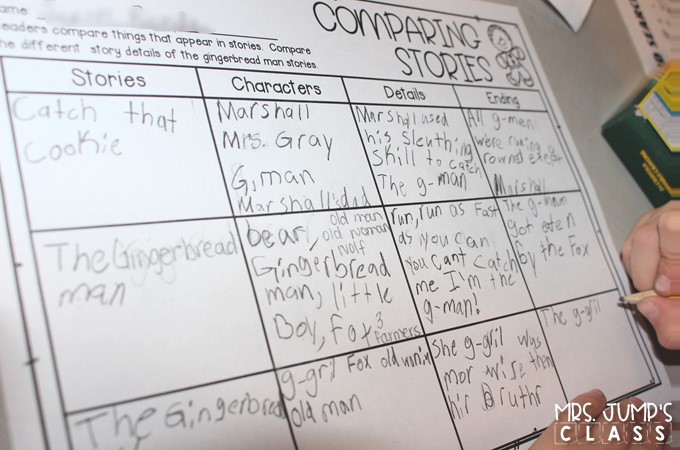 ame:
eaders compare things that appear in stories. Compare
he different story details of the gingerbread man stories.
COMPARING
STORIES
Stories
Characters
Details
Ending
Catch that
Cookie
Marshall
Mrs. Gray
G,man
Marshall'sdad
Marshall used
his Sleuthing
Skill to catch
The g-man
All g-men
were
round
Marshall
The Gingerbread
man
bear, old man
old woman
wolf
Gingerbread
man, little
Boy, Fox 3
farmers
run, run as Fast
as you can
you cant catch
me I'm the
g-man!
The g-man
got eaten
by the Fox
The Gingerbread
g-gril Fox old
old man
She g-gril was
mor wise then
hir Bruthr
The g-gril
MRS. JUMP'S
CLASS